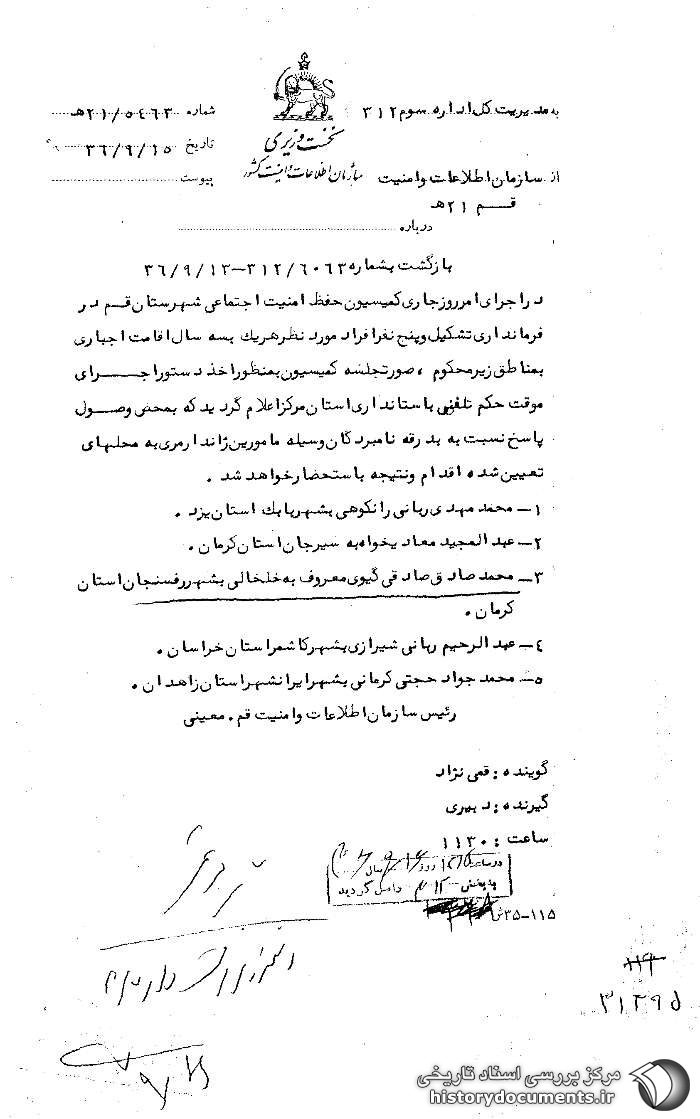 به مدیریت کل اداره سوم ۳۱۲
شماره ۲۱/۵۴۶۳هـ
نخست وزیری
تاریخ ۳۶/۹/۱۵
سازمان اطلاعات و امنیت کشور
از سازمان اطلاعات و امنیت
پیوست
قم ۲۱هـ
درباره
بازگشت بشماره ۳۱۲/۶۰۶۳-۳۶/۹/۱۳
در اجرای امر روز جاری کمیسیون حفظ امنیت اجتماعی شهرستان قم در
فرمانداری تشکیل و پنج نفر افراد مورد نظر هریک بسه سال اقامت اجباری
بمناطق زیر محکوم ، صورتجلسه کمیسیون بمنظور اخذ دستور اجرای
موقت حکم تلفنی باستانداری استان مرکز اعلام گردید که بمحض وصول
پاسخ نسبت به بدرقه نامبردگان وسیله مامورین ژاندارمری به محلهای
تعیین شده اقدام ونتیجه باستحضار خواهد شد .
۱- محمد مهدی ربانی رانکوهی بشهربابک استان یزد .
۲- عبدالمجید معادیخواه به سیرجان استان کرمان .
۳- محمد صادق صادقی گیوی معروف به خلخالی بشهر رفسنجان استان
کرمان .
۴- عبدالرحیم ربانی شیرازی بشهر کاشمر استان خراسان .
۵- محمد جواد حجتی کرمانی بشهر ایرانشهر استان زاهدان .
رئیس سازمان اطلاعات و امنیت قم . معینی
گوینده : قمی نژاد
گیرنده : دبیری
ساعت : ۱۱۳۰
در ساعت روز سال
به بخش ۳۱۲ واصل گردید
۱۱۵-۳۵ش
۳۱۲۹۵
مرکز بررسی اسناد تاریخی
historydocuments.ir